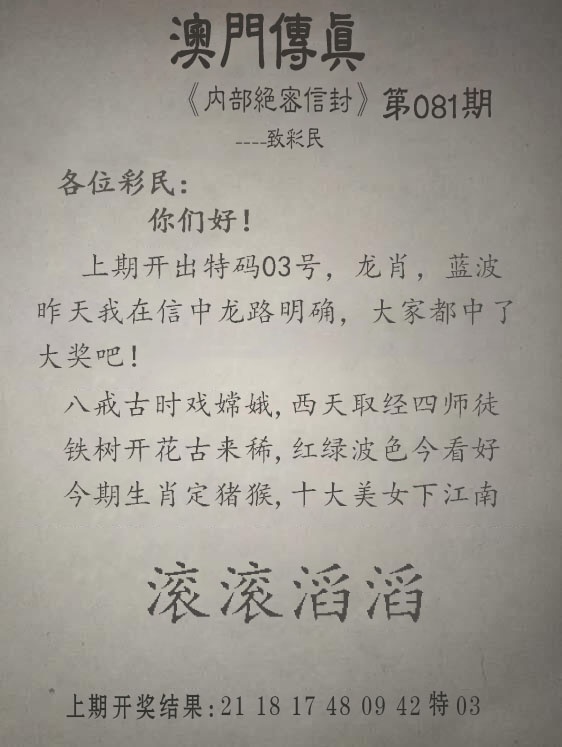 澳門傳真
《内部絕密信封》第081期
----致彩民
各位彩民：
你们好！
上期开出特码03号，龙肖，蓝波
昨天我在信中龙路明确，大家都中了
大奖吧！
八戒古时戏嫦娥,西天取经四师徒
铁树开花古来稀,红绿波色今看好
今期生肖定猪猴,十大美女下江南
滚滚滔滔
上期开奖结果:21 18 17 48 09 42特03